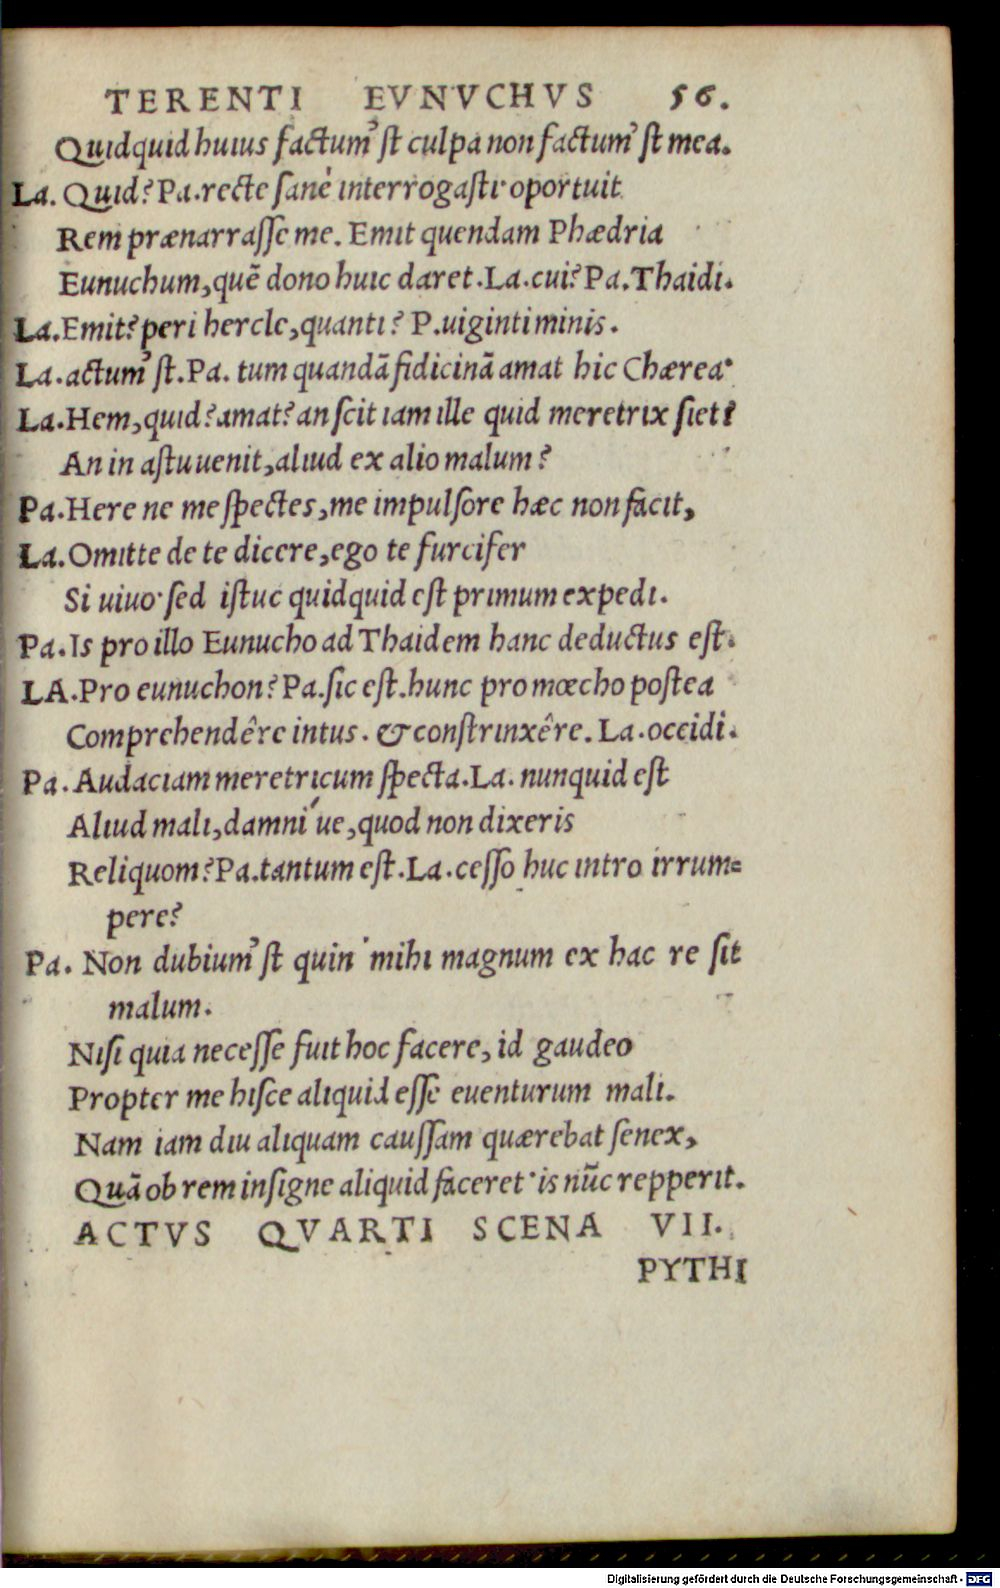 TERENTI EVNVCHVS 56.
Quidquid huius factum'st culpa non factum'st mea.
La. Quid? Pa. recte sanè interrogasti· oportuit
Rem prænarrasse me. Emit quendam Phædria
Eunuchum, quẽ dono huic daret. La. cui? Pa. Thaidi.
La. Emit? peri hercle, quanti? P. uiginti minis.
La. actum'st. Pa. tum quandã fidicinã amat hic Chærea·
La. Hem, quid? amat? an scit iam ille quid meretrix siet?
An in astu uenit, aliud ex alio malum?
Pa. Here ne me spectes, me impulsore hæc non facit,
La. Omitte de te dicere, ego te furcifer
Si uiuo· sed istuc quidquid est primum expedi.
Pa. Is pro illo Eunucho ad Thaidem hanc deductus est.
LA. Pro eunuchon? Pa. sic est. hunc pro mœcho postea
Comprehendêre intus. & constrinxêre. La. occidi.
Pa. Audaciam meretricum specta. La. nunquid est
Aliud mali, damni' ue, quod non dixeris
Reliquom? Pa. tantum est. La. cesso huc intro irrum=
pere?
Pa. Non dubium'st quin mihi magnum ex hac re sit
malum.
Nisi quia necesse fuit hoc facere, id gaudeo
Propter me hisce aliquid esse euenturum mali.
Nam iam diu aliquam caussam quærebat senex,
Quã ob rem insigne aliquid faceret· is nũc repperit.
ACTVS QVARTI SCENA VII.
PYTHI
Digitalisierung gefördert durch die Deutsche Forschungsgemeinschaft - DFG